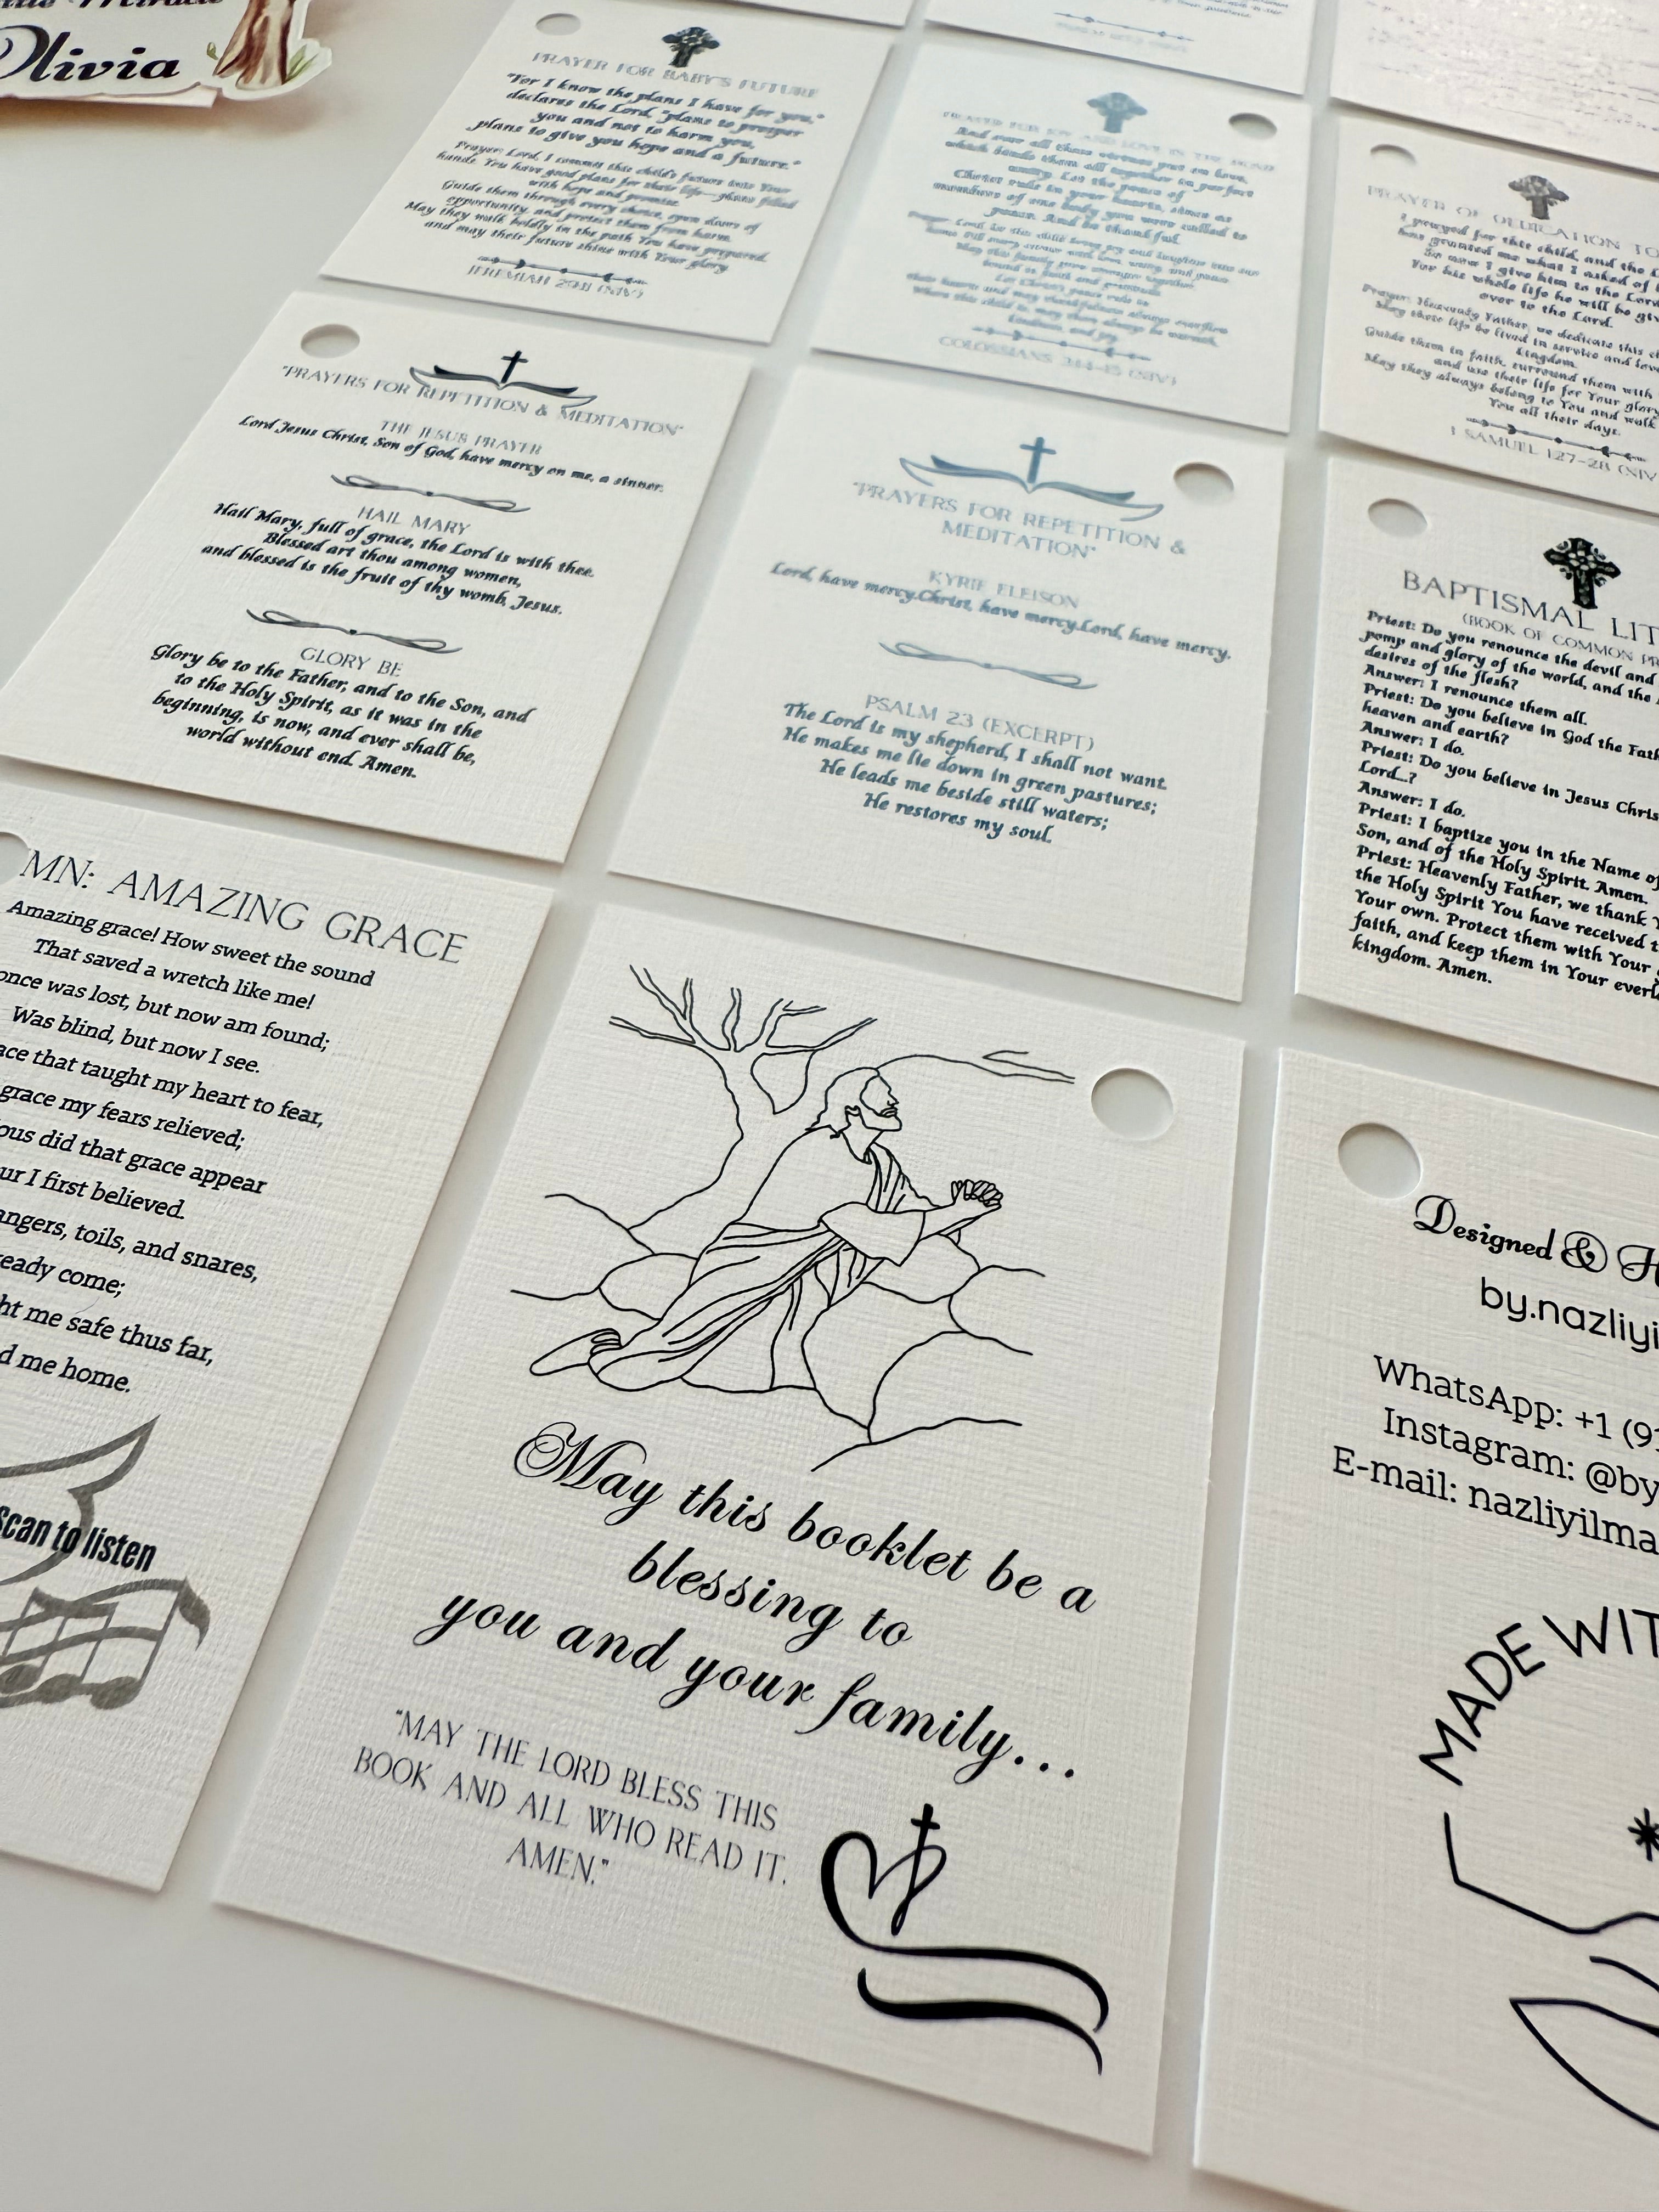 Olivia
PRAYER FOR BABY'S FUTURE
"For I know the plans I have for you,"
declares the Lord, "plans to prosper
you and not to harm you,
plans to give you hope and a future."
Prayer: Lord, I commit this child's future into Your
hands. You have good plans for their life—plans filled
with hope and promise.
Guide them through every choice, open doors of
opportunity, and protect them from harm.
May they walk boldly in the path You have prepared,
and may their future shine with Your glory
JEREMIAH 29:11 (NIV)
PRAYER FOR JOY AND LOVE IN THE
And over all these virtues put on love,
which binds them all together in perfect
unity. Let the peace of
Christ rule in your hearts, since as
members of one body you were called to
peace. And be thankful.
COLOSSIANS 3:14-15 (NIV)
PRAYER OF DEDICATION TO
I prayed for this child, and the L
has granted me what I asked of
So now I give him to the Lord
For his whole life he will be giv
over to the Lord.
Prayer: Heavenly Father, we dedicate this c
May their life be lived in service and love
kingdom.
Guide them in faith, surround them with
and use their life for Your glory
May they always belong to You and walk
You all their days.
1 SAMUEL 1:27-28 (NIV
"PRAYERS FOR REPETITION & MEDITATION"
THE JESUS PRAYER
Lord Jesus Christ, Son of God, have mercy on me, a sinner.
HAIL MARY
Hail Mary, full of grace, the Lord is with thee.
Blessed art thou among women,
and blessed is the fruit of thy womb, Jesus.
GLORY BE
Glory be to the Father, and to the Son, and
to the Holy Spirit, as it was in the
beginning, is now, and ever shall be,
world without end. Amen.
"PRAYERS FOR REPETITION &
MEDITATION"
KYRIE ELEISON
Lord, have mercy.Christ, have mercy.Lord, have mercy.
PSALM 23 (EXCERPT)
The Lord is my shepherd, I shall not want.
He makes me lie down in green pastures;
He leads me beside still waters;
He restores my soul.
BAPTISMAL LIT
(BOOK OF COMMON PR
Priest: Do you renounce the devil and
pomp and glory of the world, and the
desires of the flesh?
Answer: I renounce them all.
Priest: Do you believe in God the Fath
heaven and earth?
Answer: I do.
Priest: Do you believe in Jesus Chris
Lord...?
Answer: I do.
Priest: I baptize you in the Name of
Son, and of the Holy Spirit. Amen.
Priest: Heavenly Father, we thank Y
the Holy Spirit You have received t
Your own. Protect them with Your
faith, and keep them in Your everl
kingdom. Amen.
MN: AMAZING GRACE
Amazing grace! How sweet the sound
That saved a wretch like me!
once was lost, but now am found;
Was blind, but now I see.
ace that taught my heart to fear,
grace my fears relieved;
ous did that grace appear
ur I first believed.
angers, toils, and snares,
eady come;
ht me safe thus far,
d me home.
Scan to listen
May this booklet be a
blessing to
you and your family...
"MAY THE LORD BLESS THIS
BOOK AND ALL WHO READ IT.
AMEN."
Designed & H
by.nazliyi
WhatsApp: +1 (91
Instagram: @by
E-mail: nazliyilma
MADE WIT